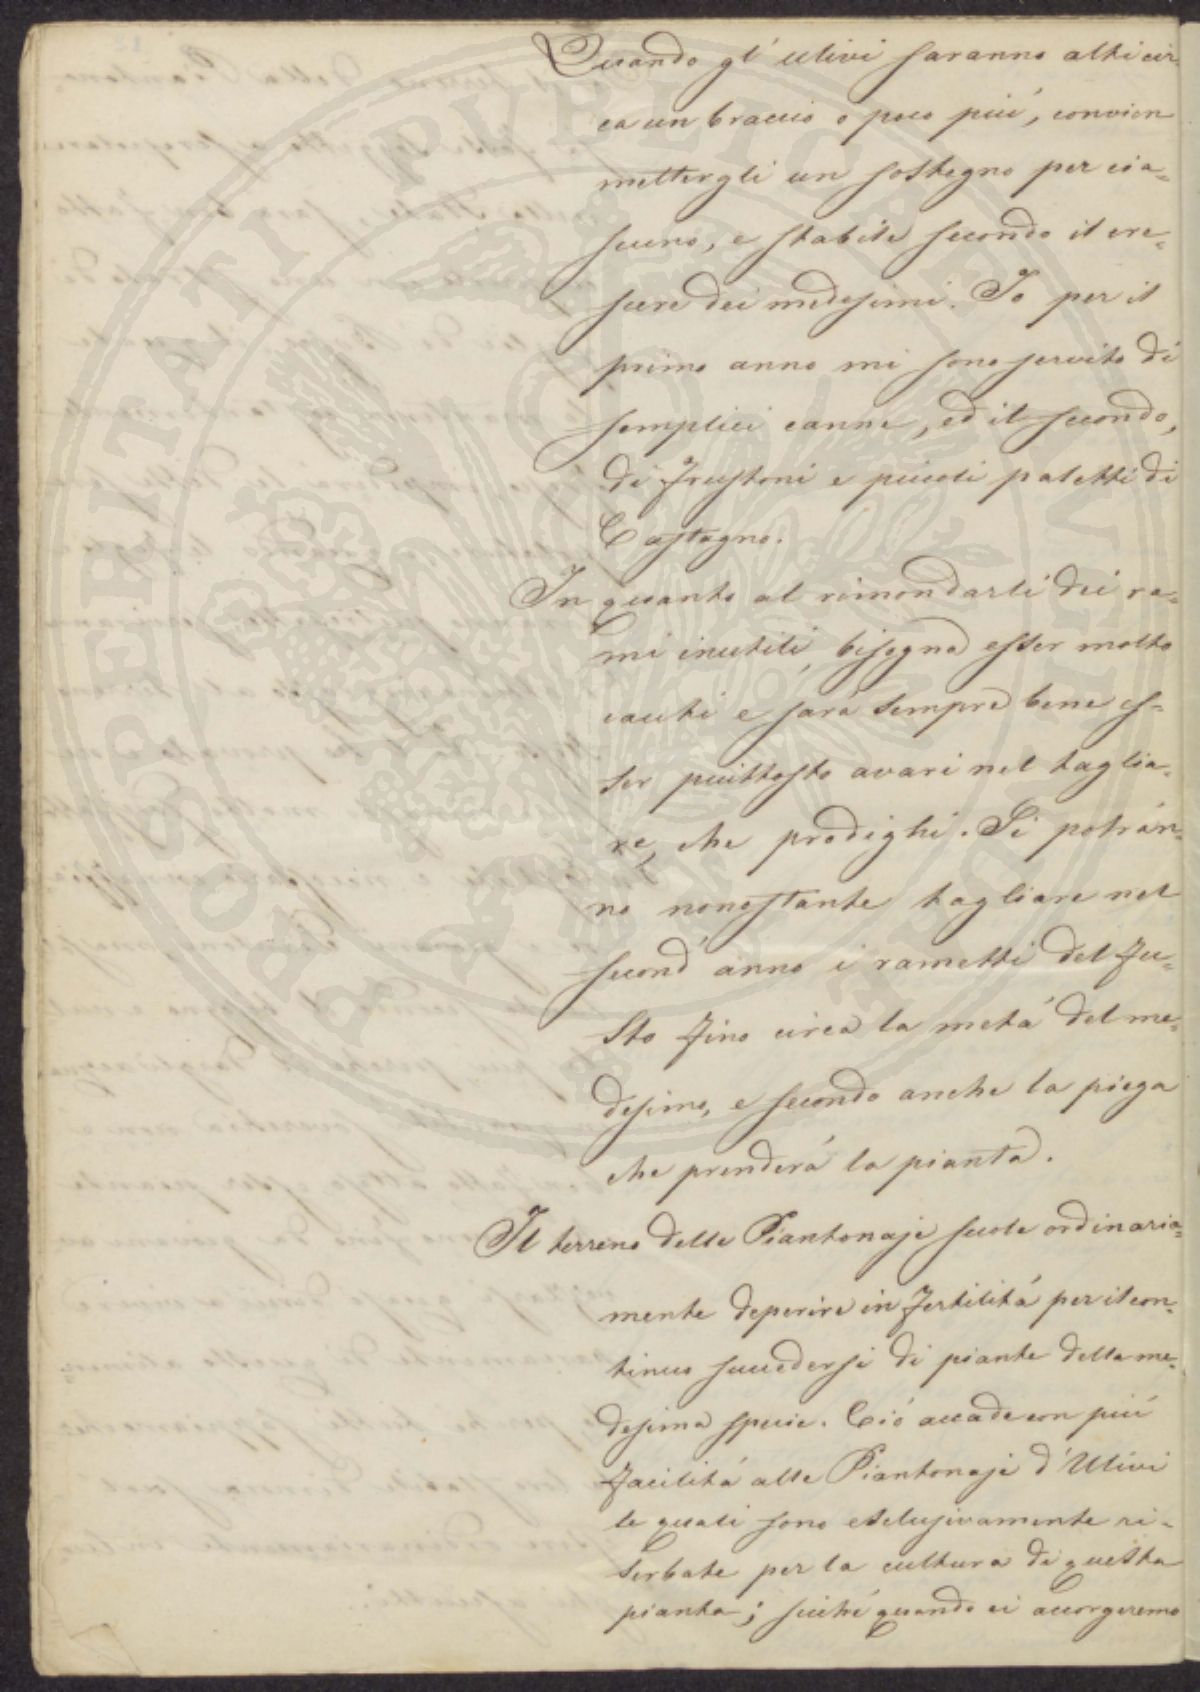 Quando gl'ulivi saranno alti cir-
ca un braccio o poco piú, convien
mettergli un sostegno per cia=
scuno, e stabile secondo il cre=
scere dei medesimi. Io per il
primo anno mi sono servito di
semplici canne, ed il secondo,
di frustoni e piccoli paletti di
Castagno.
In quanto al rimondarli dei ra=
mi inutili, bisogna esser molto
cauti e sará sempre bene es=
ser piuttosto avari nel taglia=
re, che prodighi. Si potran=
no nonostante tagliare nel
second'anno i rametti del fu=
sto fino circa la metá del me=
desimo, e secondo anche la piega
che prenderá la pianta.
Il terreno delle Piantonaje suole ordinaria=
mente deperire in fertilitá per il con=
tinuo succedersi di piante della me=
desima specie. Ció accade con piú
facilitá alle Piantonaje d'Ulivi
le quali sono esclusivamente ri=
serbate per la cultura di questa
pianta; sicché quando ci accorgeremo
PROSPERITATI PUBLICAE AUGENDAE